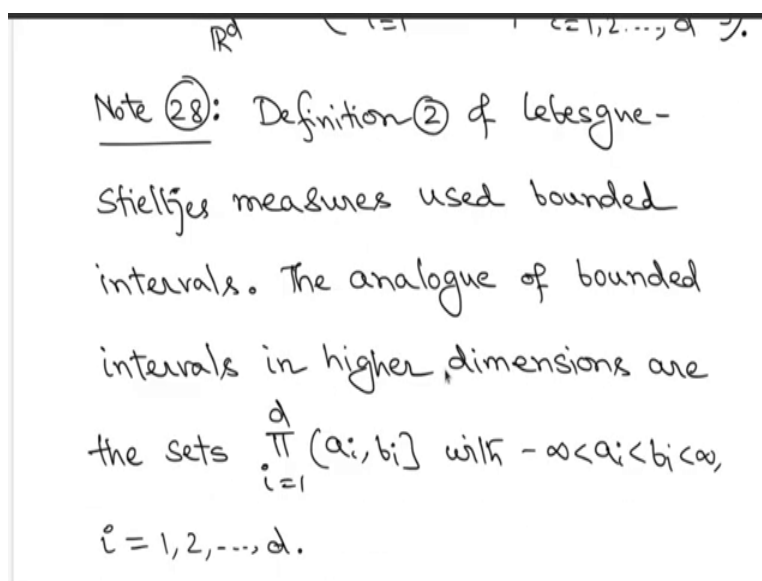 ℝᵈ ( i=1 i=1,2...,d }.
Note 28: Definition 2 of Lebesgue-
Stieltjes measures used bounded
intervals. The analogue of bounded
intervals in higher dimensions are
the sets ∏_{i=1}^{d} (aᵢ, bᵢ] with -∞<aᵢ<bᵢ<∞,
i = 1, 2, ---, d.